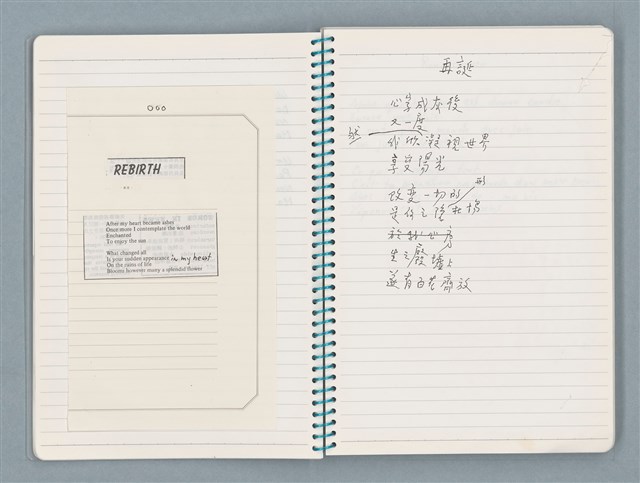 000
REBIRTH
After my heart became ashes
Once more I contemplate the world
Enchanted
To enjoy the sun
What changed all
Is your sudden appearance in my heart
On the ruins of life
Blooms however many a splendid flower
再誕
成灰後
又一度
然
欣凝視世界
享受陽光
改變一切的
是你之
於我心房
生之廢墟上
遂有百花齊放